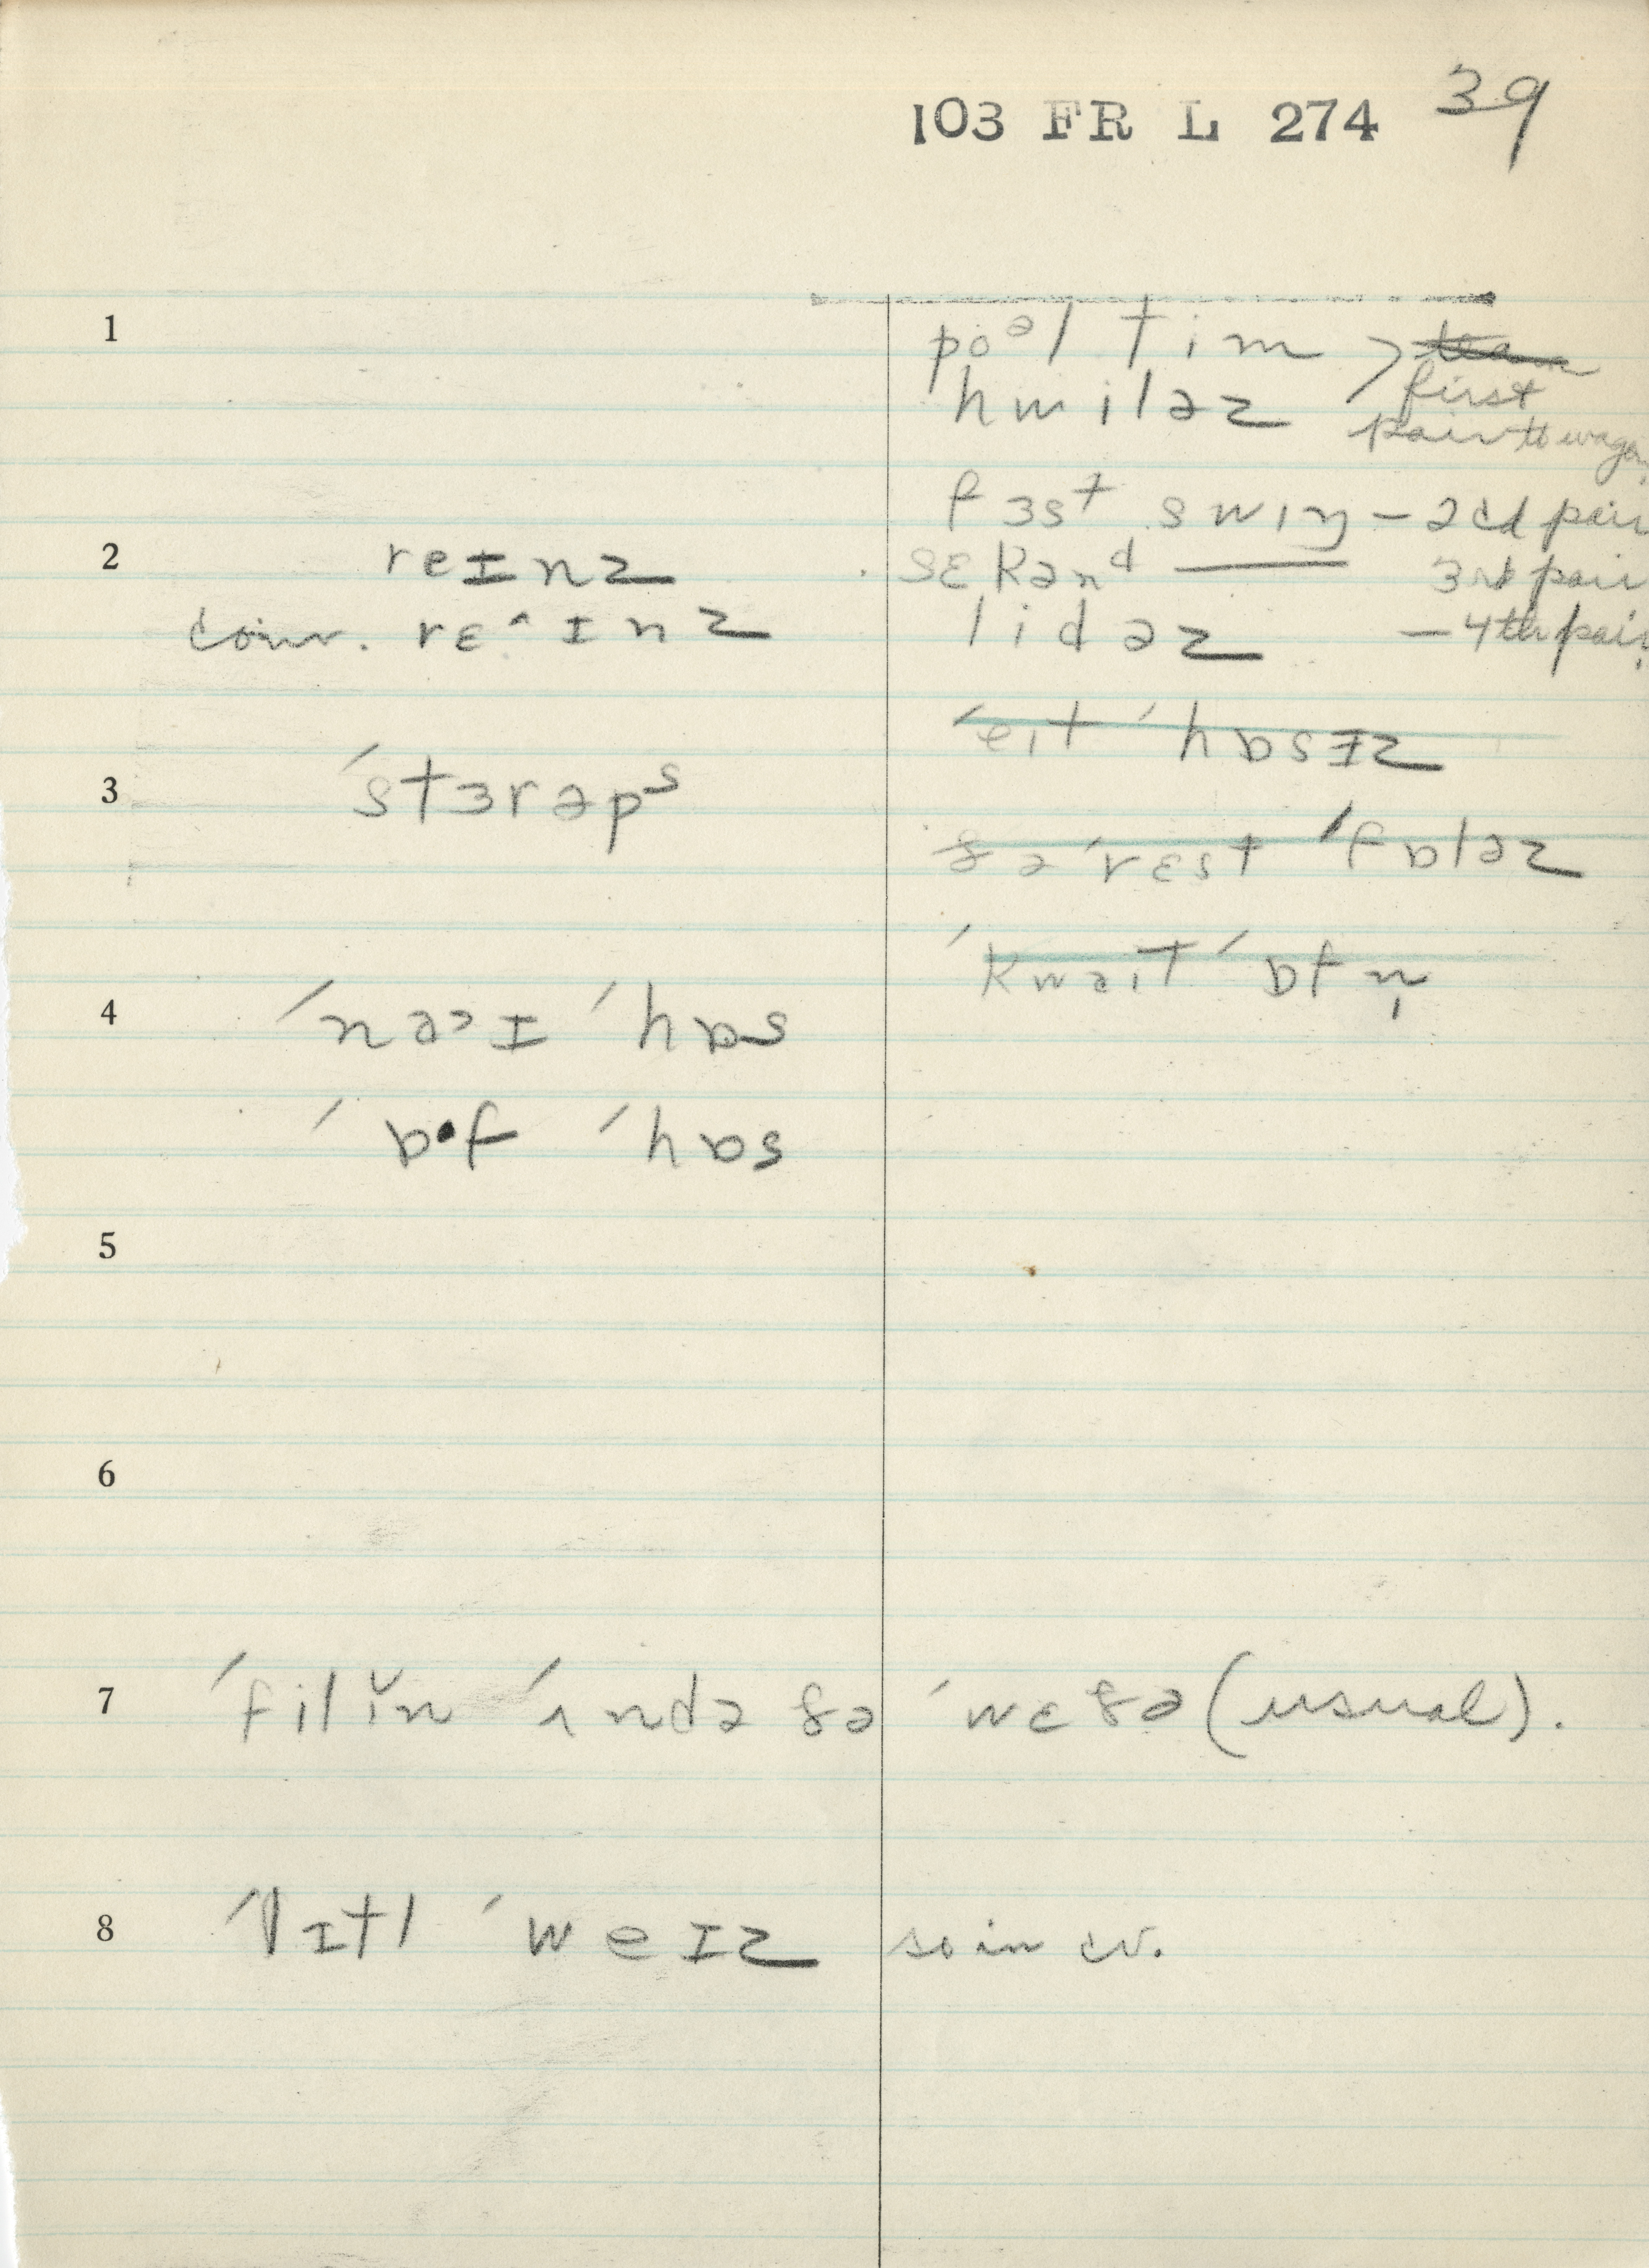 103 FR L 274 39
1
poᵊl tim
hwiləz
first
pair to wagon
fɜst swiŋ — 2cd pair
2
reɪnz
sɛkənᵈ —— 3rd pair
conv. rɛ^ɪnz
lidəz — 4th pair
ˈeɪt ˈhɒsɪz
3
ˈstɜrəpˢ
ðə ˈrɛst ˈfɒləz
ˈkwaɪt ˈɒfn̩
4
ˈnəɔɪ ˈhɒs
ˈɒ·f ˈhɒs
5
6
7
ˈfilɪ̆n ˈʌndə ðə ˈwɛðə (usual).
8
ˈlɪtl ˈweɪz so in cv.